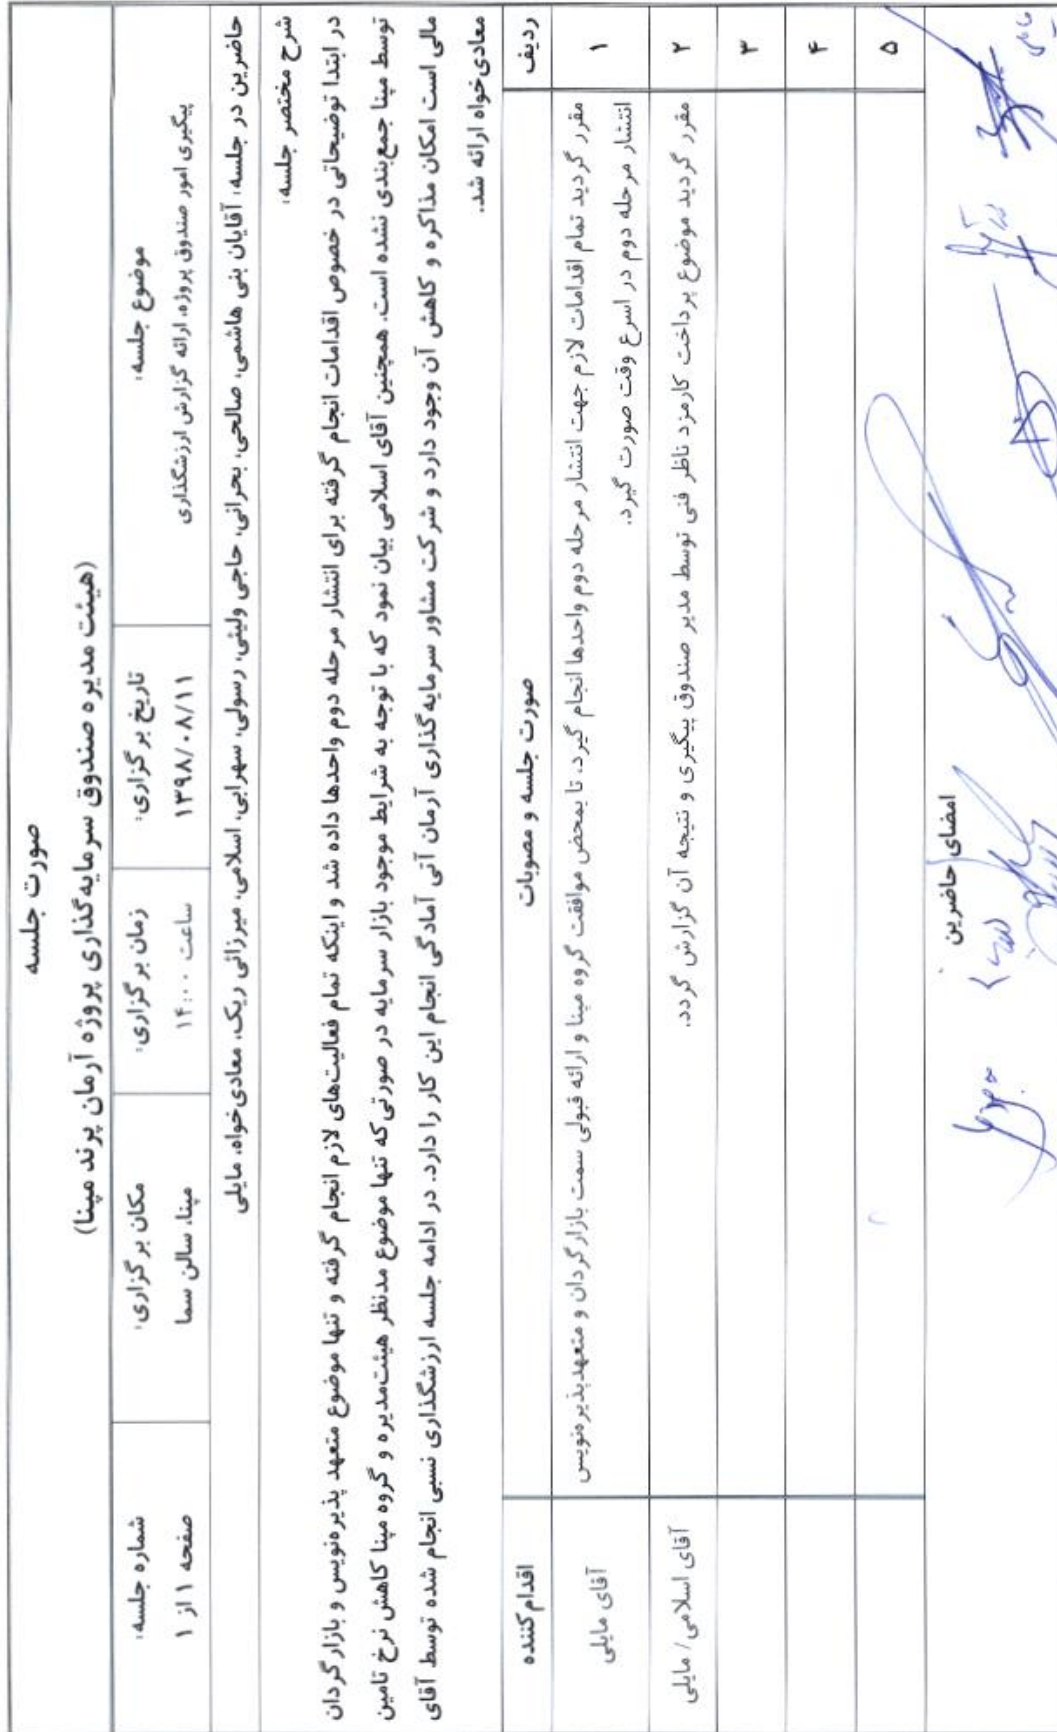 صورت جلسه
(هیئت مدیره صندوق سرمایه‌گذاری پروژه آرمان پرند مپنا)
موضوع جلسه:
پیگیری امور صندوق پروژه، ارائه گزارش ارزشگذاری
تاریخ برگزاری:
۱۳۹۸/۰۸/۱۱
زمان برگزاری:
ساعت ۱۴:۰۰
مکان برگزاری:
مپنا، سالن سما
شماره جلسه:
صفحه ۱ از ۱
حاضرین در جلسه: آقایان بنی هاشمی، صالحی، بحرانی، حاجی ولیئی، رسولی، سهرابی، اسلامی، میرزائی ریک، معادی‌خواه، مایلی
شرح مختصر جلسه:
در ابتدا توضیحاتی در خصوص اقدامات انجام گرفته برای انتشار مرحله دوم واحدها داده شد و اینکه تمام فعالیت‌های لازم انجام گرفته و تنها موضوع متعهد پذیره‌نویس و بازارگردان
توسط مپنا جمع‌بندی نشده است. همچنین آقای اسلامی بیان نمود که با توجه به شرایط موجود بازار سرمایه در صورتی‌که تنها موضوع مدنظر هیئت‌مدیره و گروه مپنا کاهش نرخ تامین
مالی است امکان مذاکره و کاهش آن وجود دارد و شرکت مشاور سرمایه‌گذاری آرمان آتی آمادگی انجام این کار را دارد. در ادامه جلسه ارزشگذاری نسبی انجام شده توسط آقای
معادی‌خواه ارائه شد.
ردیف
صورت جلسه و مصوبات
اقدام‌کننده
۱
مقرر گردید تمام اقدامات لازم جهت انتشار مرحله دوم واحدها انجام گیرد، تا بمحض موافقت گروه مپنا و ارائه قبولی سمت بازارگردان و متعهدپذیره‌نویس
انتشار مرحله دوم در اسرع وقت صورت گیرد.
آقای مایلی
۲
مقرر گردید موضوع پرداخت کارمزد ناظر فنی توسط مدیر صندوق پیگیری و نتیجه آن گزارش گردد.
آقای اسلامی/ مایلی
۳
۴
۵
امضای حاضرین